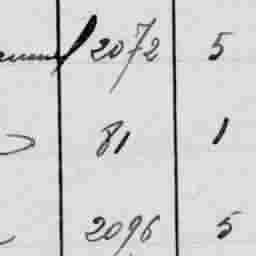 2072 5
81 1
2096 5